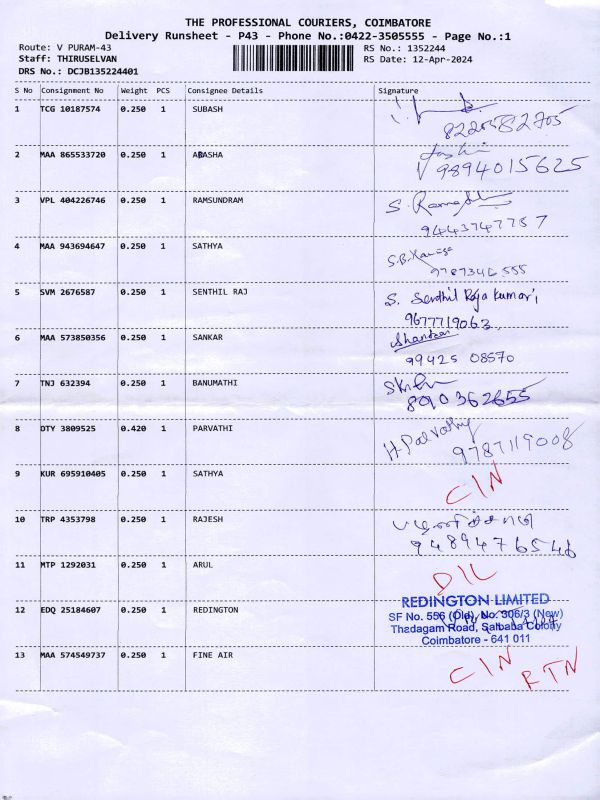 THE PROFESSIONAL COURIERS, COIMBATORE
Delivery Runsheet - P43 - Phone No.:0422-3505555 - Page No.:1
Route: V PURAM-43 RS No.: 1352244
Staff: THIRUSELVAN RS Date: 12-Apr-2024
DRS No.: DCJB135224401
S No Consignment No Weight PCS Consignee Details Signature
1 TCG 10187574 0.250 1 SUBASH
2 MAA 865533720 0.250 1 ABASHA
9894015625
3 VPL 404226746 0.250 1 RAMSUNDRAM S.
4 MAA 943694647 0.250 1 SATHYA S.B.
9787346 555
5 SVM 2676587 0.250 1 SENTHIL RAJ S. Sendhil Raja Kumari
9677719063
6 MAA 573850356 0.250 1 SANKAR Shankar
99425 08570
7 TNJ 632394 0.250 1 BANUMATHI
8 DTY 3809525 0.420 1 PARVATHI H. Parvathy
9787119008
9 KUR 695910405 0.250 1 SATHYA C/N
10 TRP 4353798 0.250 1 RAJESH
9489476546
11 MTP 1292031 0.250 1 ARUL D/L
12 EDQ 25184607 0.250 1 REDINGTON REDINGTON LIMITED
SF No. 556 (Old), No. 306/3 (New)
Thadagam Road, Saibaba Colony
Coimbatore - 641 011
13 MAA 574549737 0.250 1 FINE AIR C/N RTN